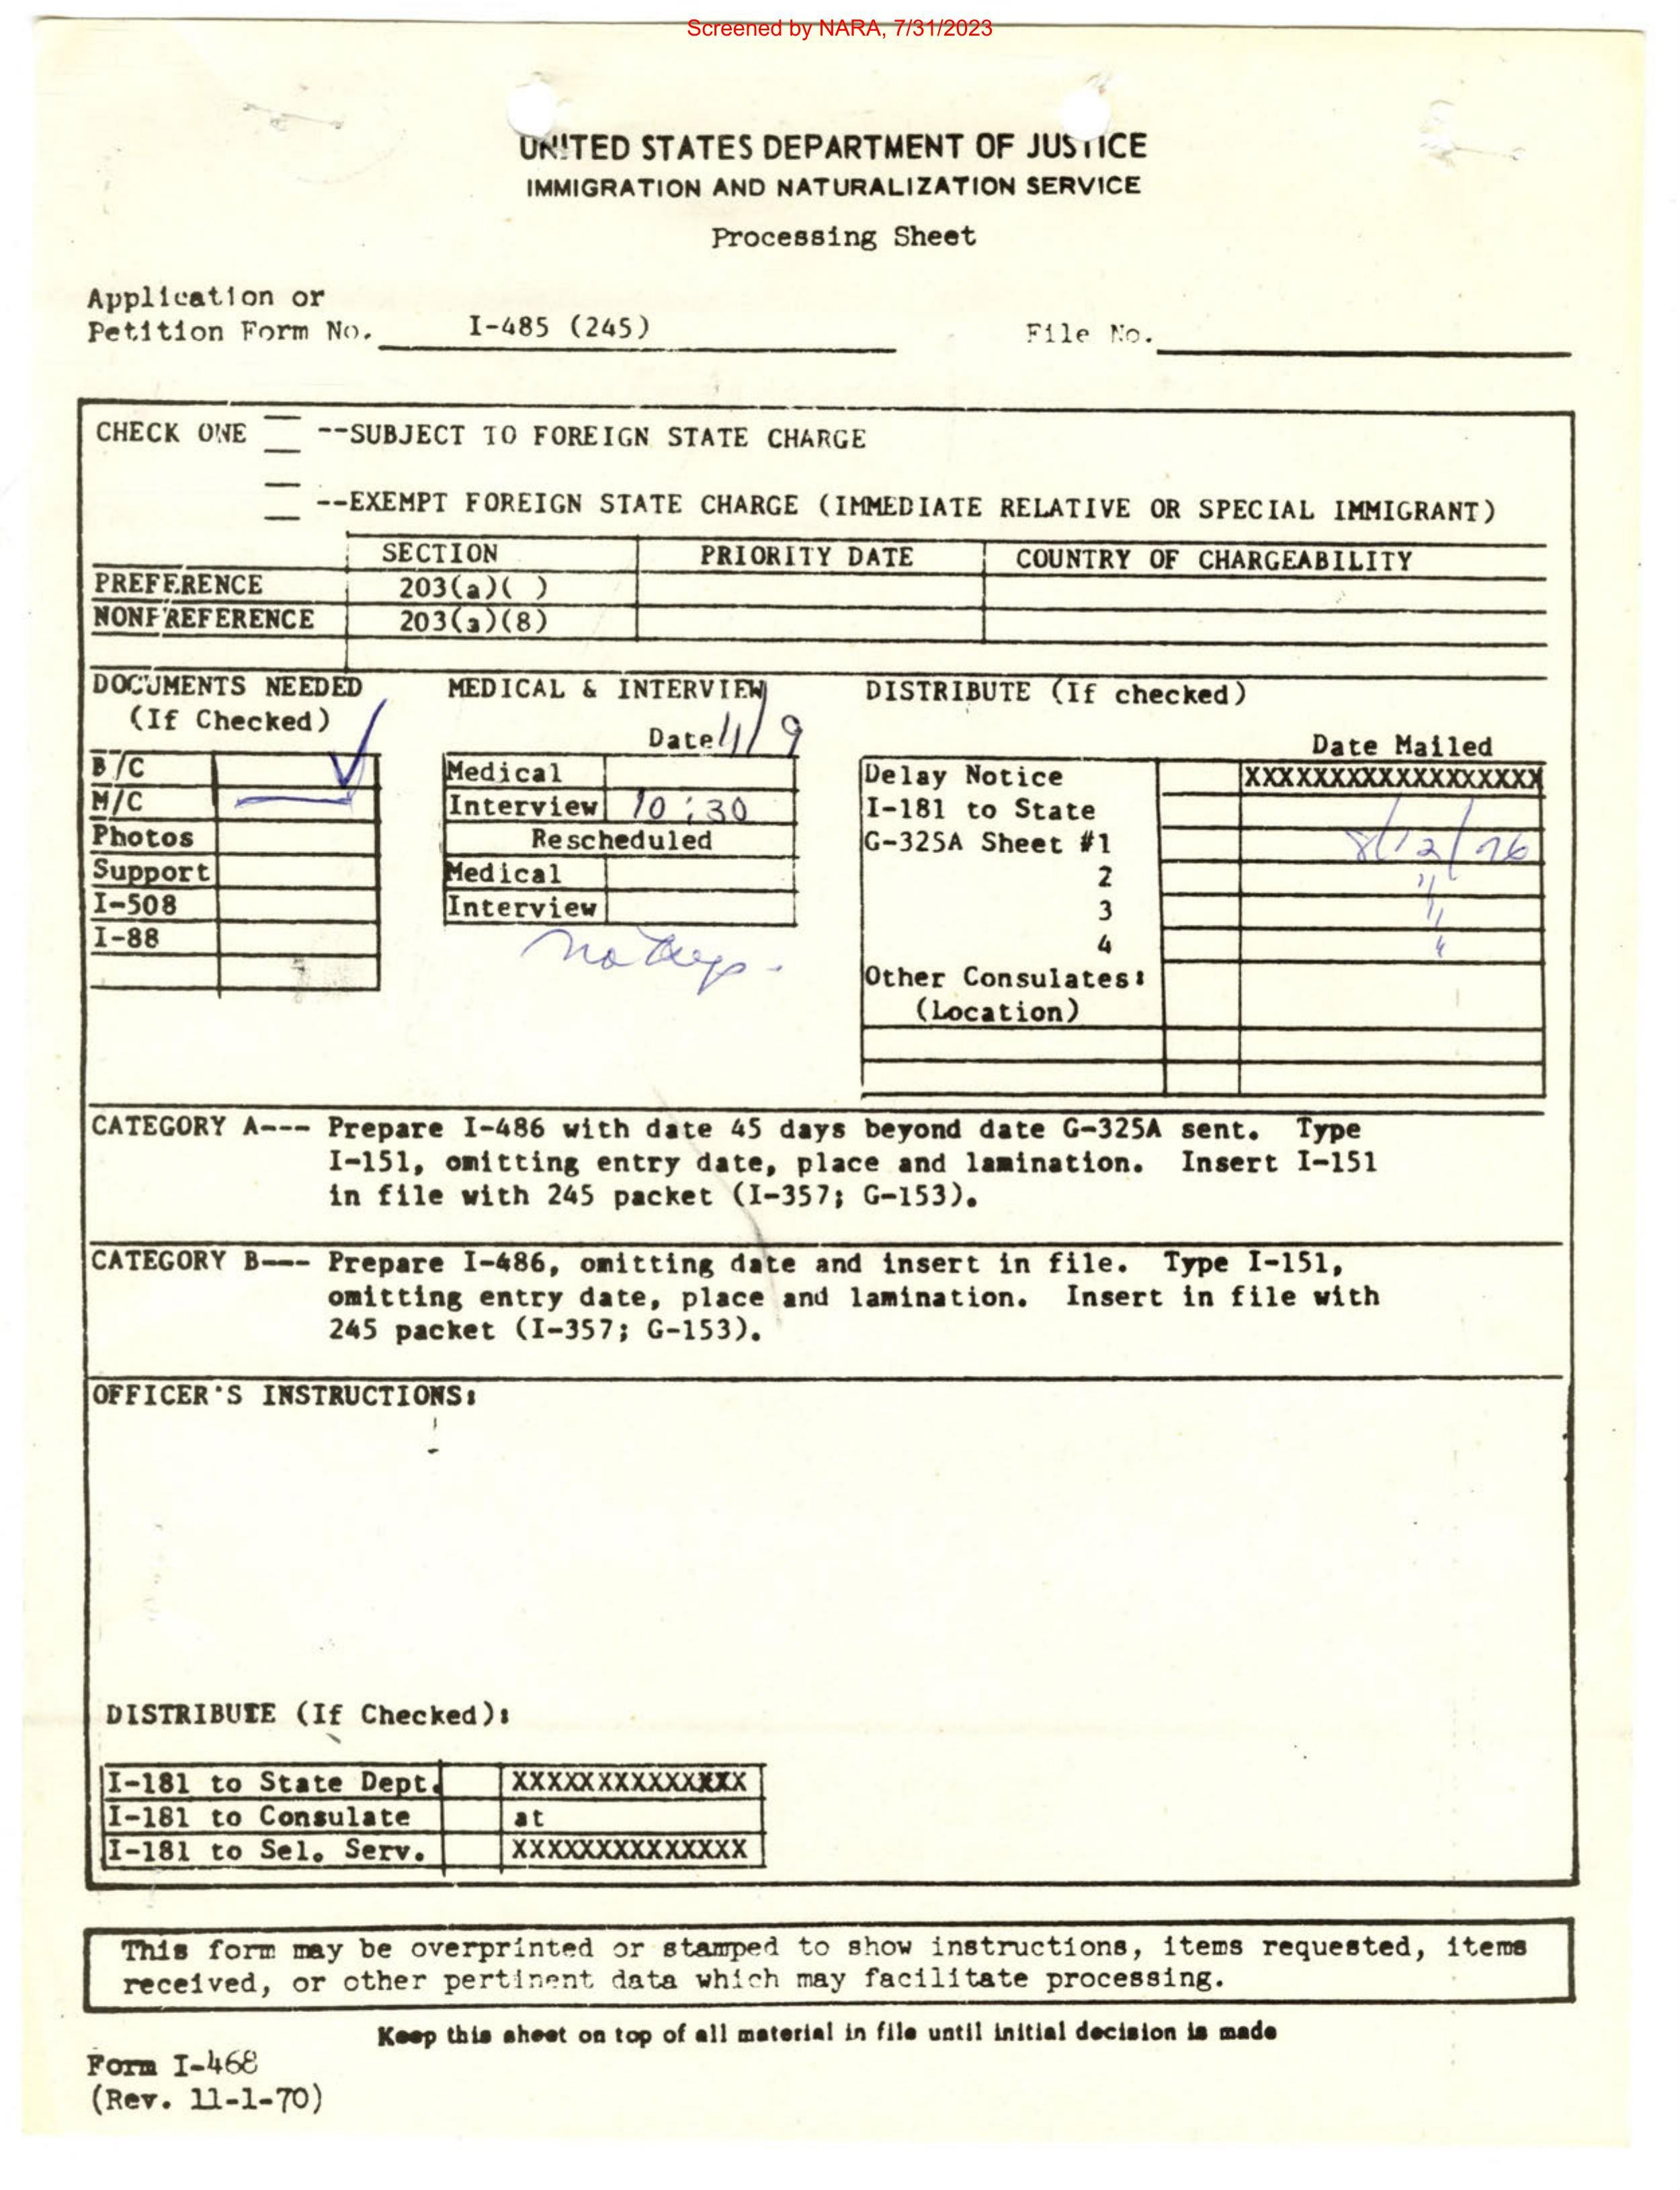 Screened by NARA, 7/31/2023
UNITED STATES DEPARTMENT OF JUSTICE
IMMIGRATION AND NATURALIZATION SERVICE
Processing Sheet
Application or
Petition Form No. I-485 (245) File No.
CHECK ONE --SUBJECT TO FOREIGN STATE CHARGE
--EXEMPT FOREIGN STATE CHARGE (IMMEDIATE RELATIVE OR SPECIAL IMMIGRANT)
SECTION PRIORITY DATE COUNTRY OF CHARGEABILITY
PREFERENCE 203(a)( )
NONPREFERENCE 203(a)(8)
DOCUMENTS NEEDED MEDICAL & INTERVIEW DISTRIBUTE (If checked)
(If Checked) Date 11/9 Date Mailed
B/C Medical Delay Notice XXXXXXXXXXXXXXXXXX
M/C Interview 10:30 I-181 to State
Photos Rescheduled G-325A Sheet #1 8/12/76
Support Medical 2 "
I-508 Interview 3 "
I-88 no 4 "
Other Consulates:
(Location)
CATEGORY A--- Prepare I-486 with date 45 days beyond date G-325A sent. Type
I-151, omitting entry date, place and lamination. Insert I-151
in file with 245 packet (I-357; G-153).
CATEGORY B--- Prepare I-486, omitting date and insert in file. Type I-151,
omitting entry date, place and lamination. Insert in file with
245 packet (I-357; G-153).
OFFICER'S INSTRUCTIONS:
DISTRIBUTE (If Checked):
I-181 to State Dept. XXXXXXXXXXXXXX
I-181 to Consulate at
I-181 to Sel. Serv. XXXXXXXXXXXXXX
This form may be overprinted or stamped to show instructions, items requested, items
received, or other pertinent data which may facilitate processing.
Keep this sheet on top of all material in file until initial decision is made
Form I-468
(Rev. 11-1-70)